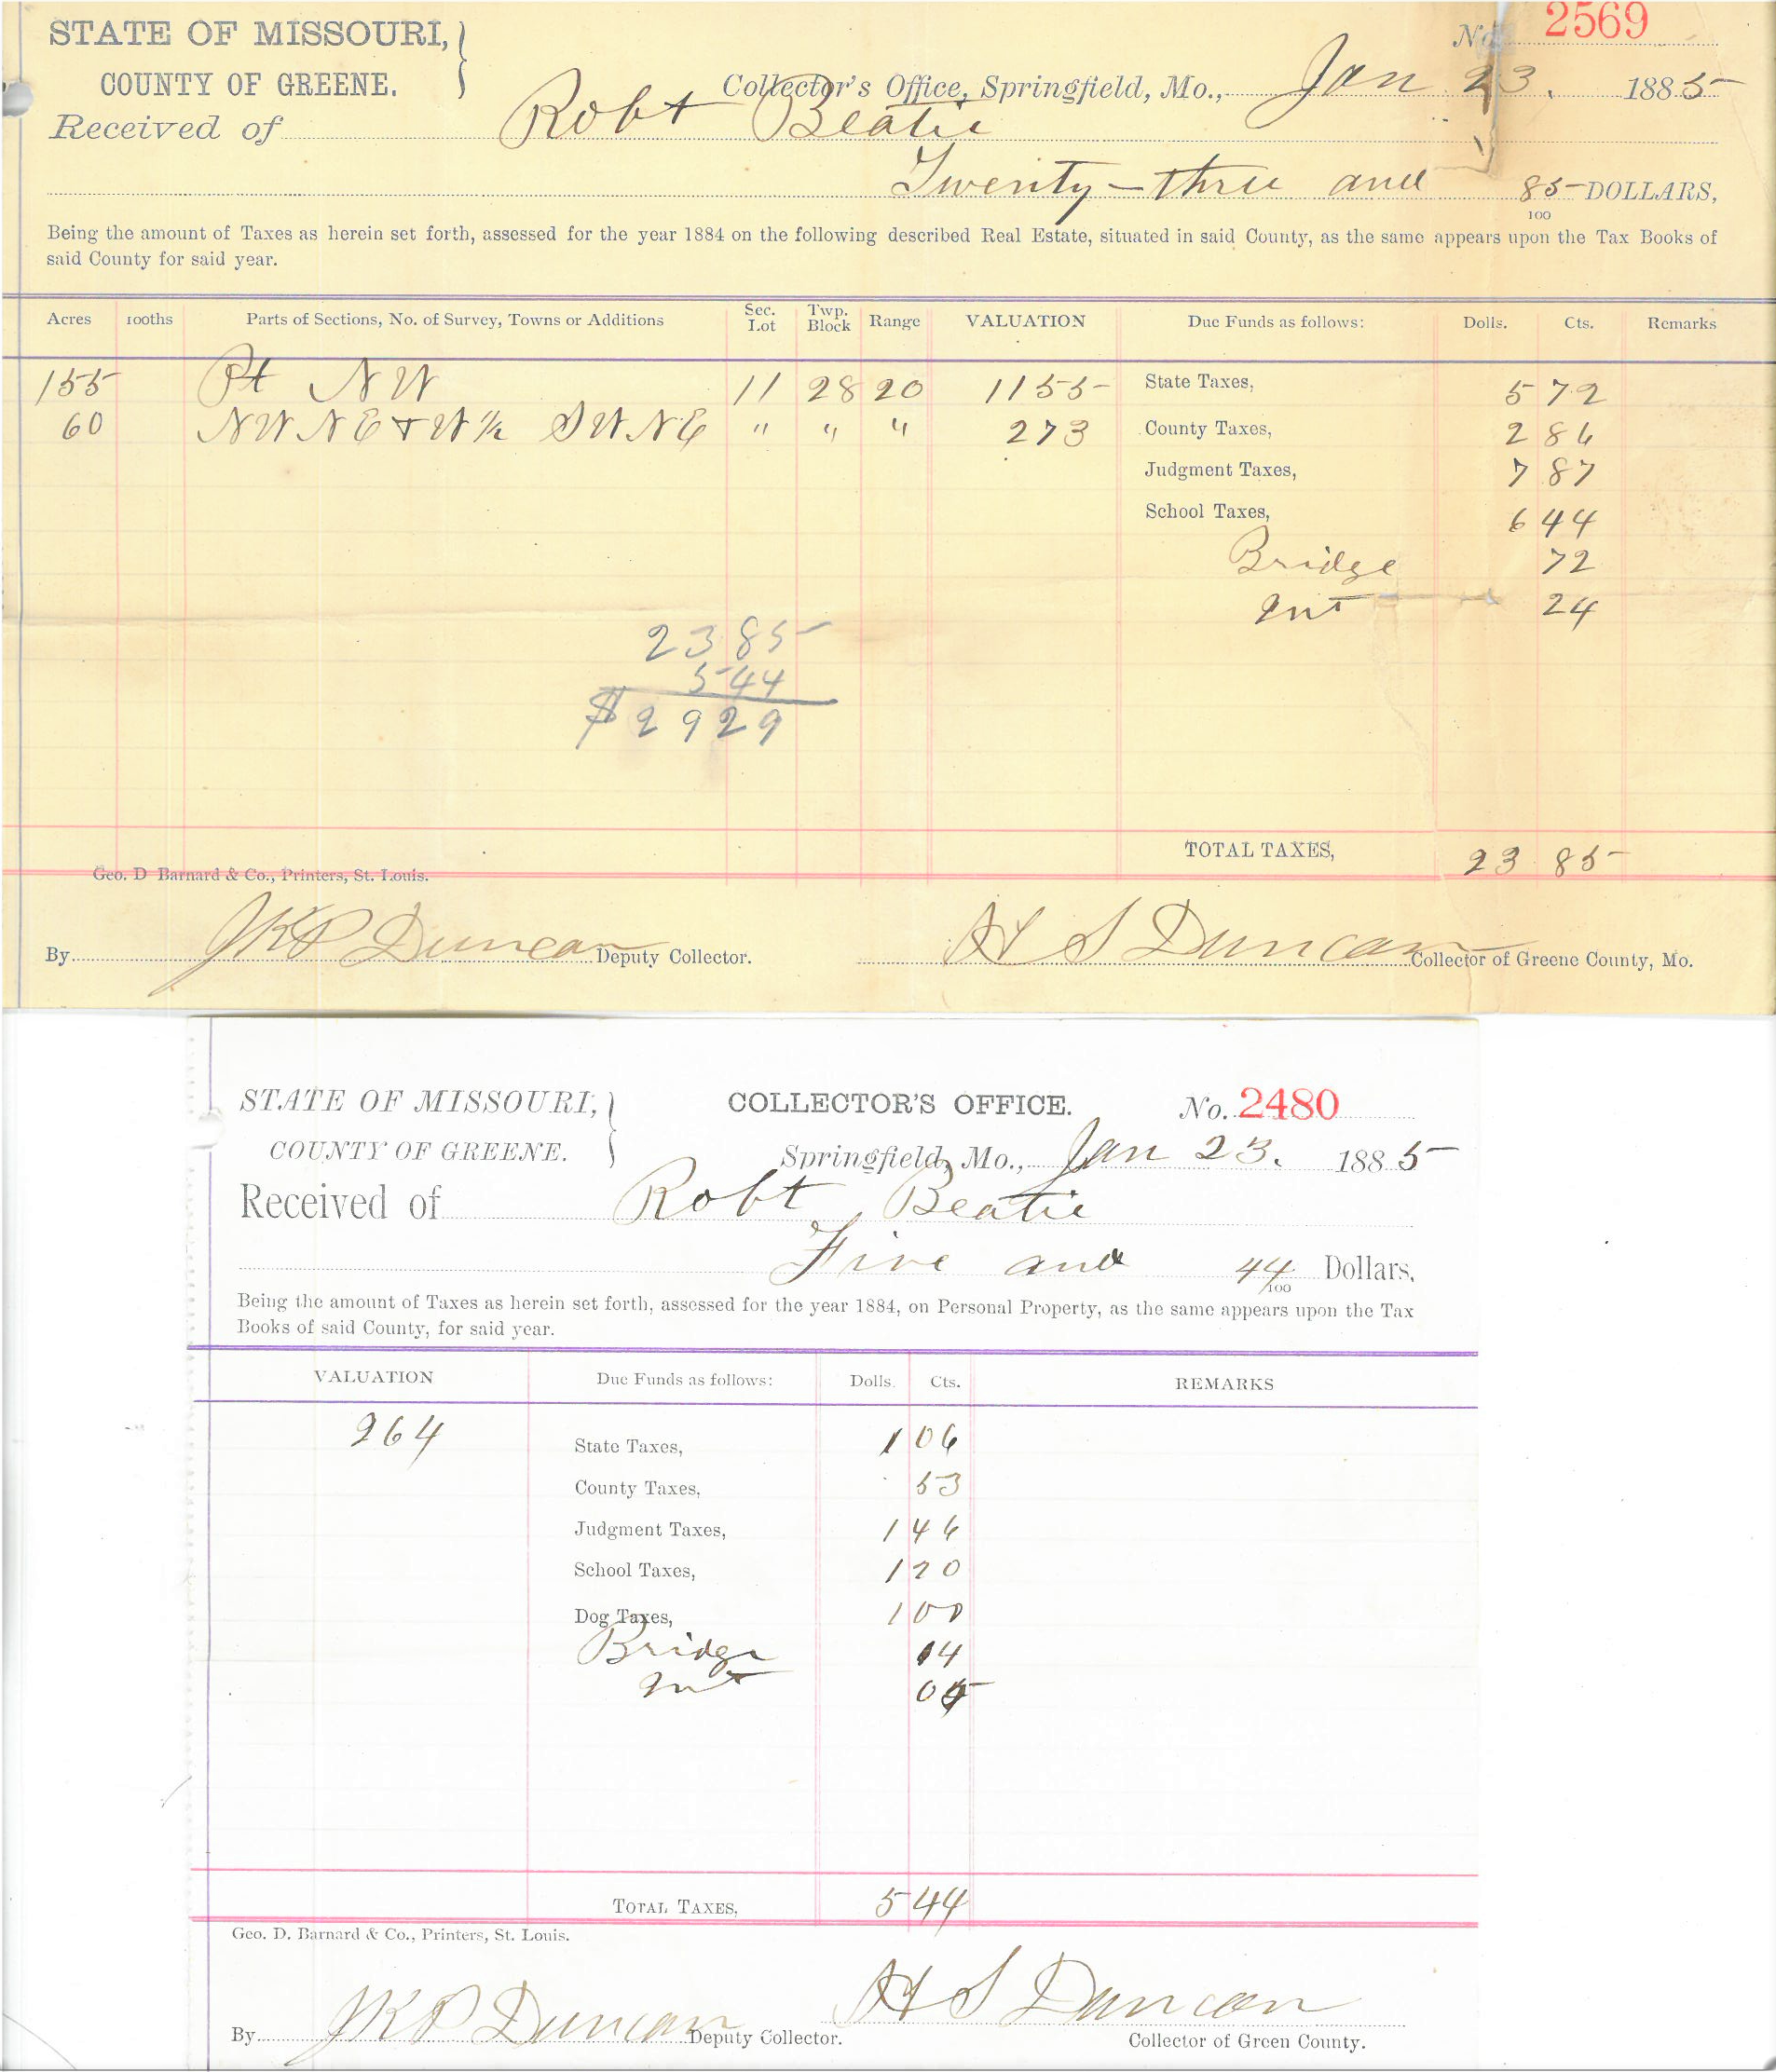 STATE OF MISSOURI,
COUNTY OF GREENE.
No. 2569
Collector's Office, Springfield, Mo., Jan 23. 1885
Received of Robt Beatie
Twenty-three and 85/100 DOLLARS,
Being the amount of Taxes as herein set forth, assessed for the year 1884 on the following described Real Estate, situated in said County, as the same appears upon the Tax Books of
said County for said year.
Acres 100ths Parts of Sections, No. of Survey, Towns or Additions Sec. Lot Twp. Block Range VALUATION Due Funds as follows: Dolls. Cts. Remarks
155 Pt NW 11 28 20 1155 State Taxes, 5 72
60 NW NE + W ½ SW NE " " " 273 County Taxes, 2 86
Judgment Taxes, 7 87
School Taxes, 6 44
Bridge 72
Int 24
2385
544
$2929
TOTAL TAXES, 23 85
Geo. D Barnard & Co., Printers, St. Louis.
By JKP Duncan Deputy Collector. H S Duncan Collector of Greene County, Mo.
STATE OF MISSOURI,
COUNTY OF GREENE.
COLLECTOR'S OFFICE. No. 2480
Springfield, Mo., Jan 23. 1885
Received of Robt Beatie
Five and 44/100 Dollars,
Being the amount of Taxes as herein set forth, assessed for the year 1884, on Personal Property, as the same appears upon the Tax
Books of said County, for said year.
VALUATION Due Funds as follows: Dolls. Cts. REMARKS
264 State Taxes, 1 06
County Taxes, 53
Judgment Taxes, 1 46
School Taxes, 1 20
Dog Taxes, 1 00
Bridge 14
Int 05
TOTAL TAXES, 5 44
Geo. D. Barnard & Co., Printers, St. Louis.
By JKP Duncan Deputy Collector. H S Duncan
Collector of Green County.